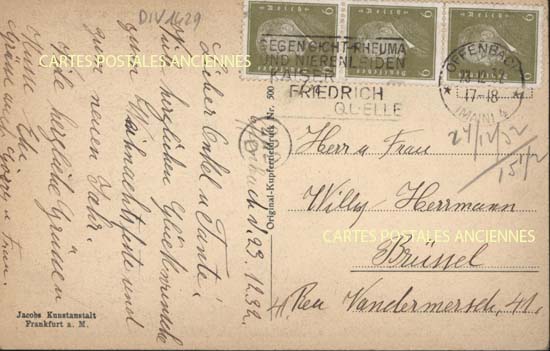 DIV1629
6
6
6
GEGEN GICHT-RHEUMA
UND NIERENLEIDEN
KAISER
FRIEDRICH
QUELLE
OFFENBACH
23.12.32
17-18
(MAIN) 4
24/12/32
Offenbach d. 23.12.32.
Lieber Onkel u Tante!
Die herzlichen Glückwünsche
zum Weihnachtsfeste und
zum neuen Jahr.
Viele herzliche Grüsse u
Küsse
u Frau.
Original-Kupfertiefdruck Nr. 500
Jacobs Kunstanstalt
Frankfurt a. M.
Herr u Frau
Willy Herrmann
Brüssel
41, Rue Vandermersch, 41.
CARTES POSTALES ANCIENNES
CARTES POSTALES ANCIENNES
CARTES POSTALES ANCIENNES
CARTES POSTALES ANCIENNES